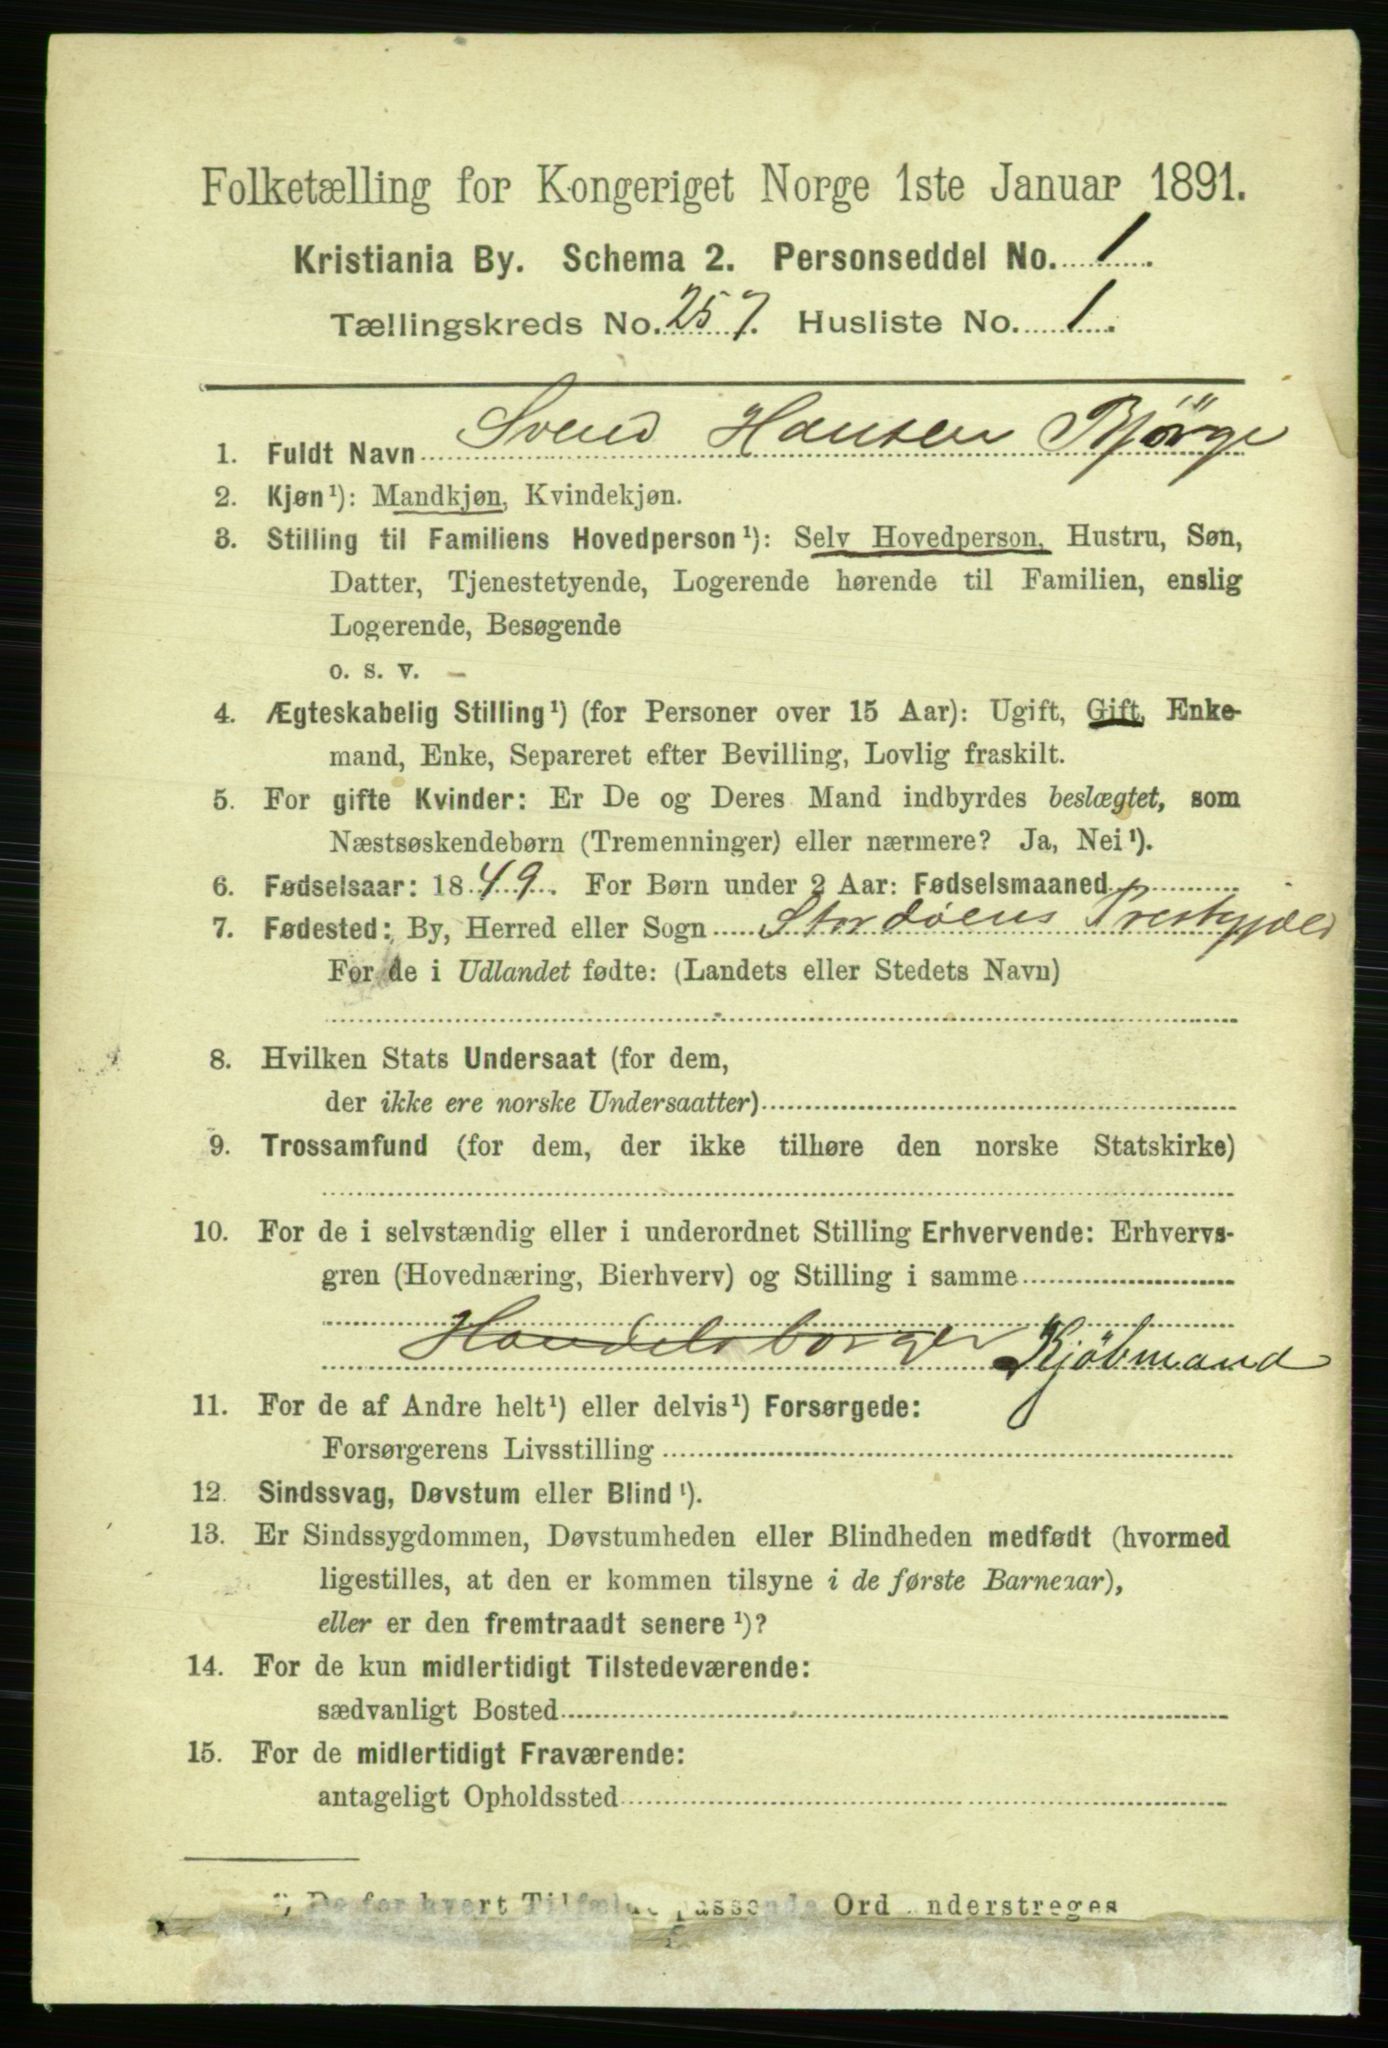 Folketælling for Kongeriget Norge 1ste Januar 1891.
Kristiania By. Schema 2. Personseddel No. 1.
Tællingskreds No. 257. Husliste No. 1.
1. Fuldt Navn Svend Hansen Bjørge
2. Kjøn¹): Mandkjøn, Kvindekjøn.
3. Stilling til Familiens Hovedperson¹): Selv Hovedperson, Hustru, Søn,
Datter, Tjenestetyende, Logerende hørende til Familien, enslig
Logerende, Besøgende
o. s. v. –
4. Ægteskabelig Stilling¹) (for Personer over 15 Aar): Ugift, Gift, Enke-
mand, Enke, Separeret efter Bevilling, Lovlig fraskilt.
5. For gifte Kvinder: Er De og Deres Mand indbyrdes beslægtet, som
Næstsøskendebørn (Tremenninger) eller nærmere? Ja, Nei¹).
6. Fødselsaar: 1849. For Børn under 2 Aar: Fødselsmaaned
7. Fødested: By, Herred eller Sogn Stordøens Prestgjæld
For de i Udlandet fødte: (Landets eller Stedets Navn)
8. Hvilken Stats Undersaat (for dem,
der ikke ere norske Undersaatter)
9. Trossamfund (for dem, der ikke tilhøre den norske Statskirke)
10. For de i selvstændig eller i underordnet Stilling Erhvervende: Erhvervs-
gren (Hovednæring, Bierhverv) og Stilling i samme
Handelsborger Kjöbmand
11. For de af Andre helt¹) eller delvis¹) Forsørgede:
Forsørgerens Livsstilling
12. Sindssvag, Døvstum eller Blind¹).
13. Er Sindssygdommen, Døvstumheden eller Blindheden medfødt (hvormed
ligestilles, at den er kommen tilsyne i de første Barneaar),
eller er den fremtraadt senere¹)?
14. For de kun midlertidigt Tilstedeværende:
sædvanligt Bosted
15. For de midlertidigt Fraværende:
antageligt Opholdssted
¹) De for hvert Tilfælde passende Ord understreges